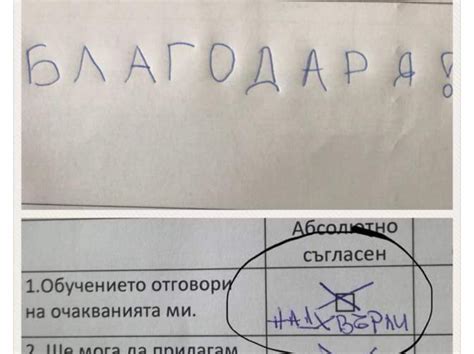 БЛАГОДАРЯ!
Абсолютно
съгласен
1.Обучението отговори
на очакванията ми.
НАДХВЪРЛИ
2. Ще мога да прилагам